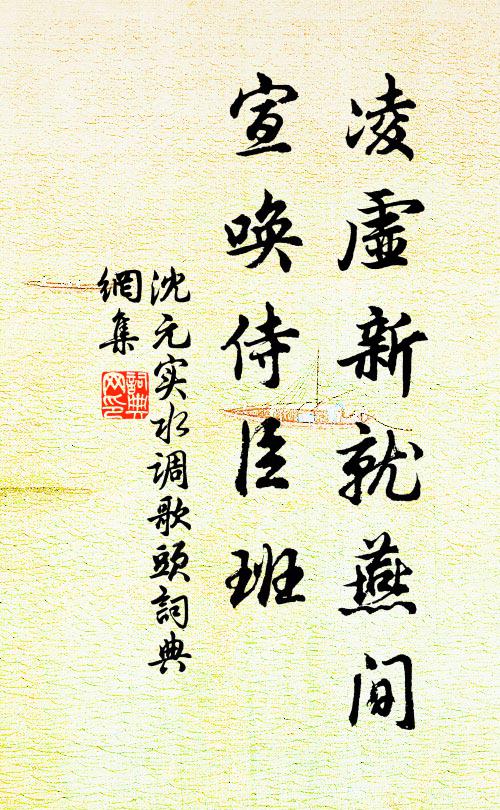 凌虛新就燕间
宣唤侍臣班
沈元实水调歌頭詞典
網集
詞典
网印